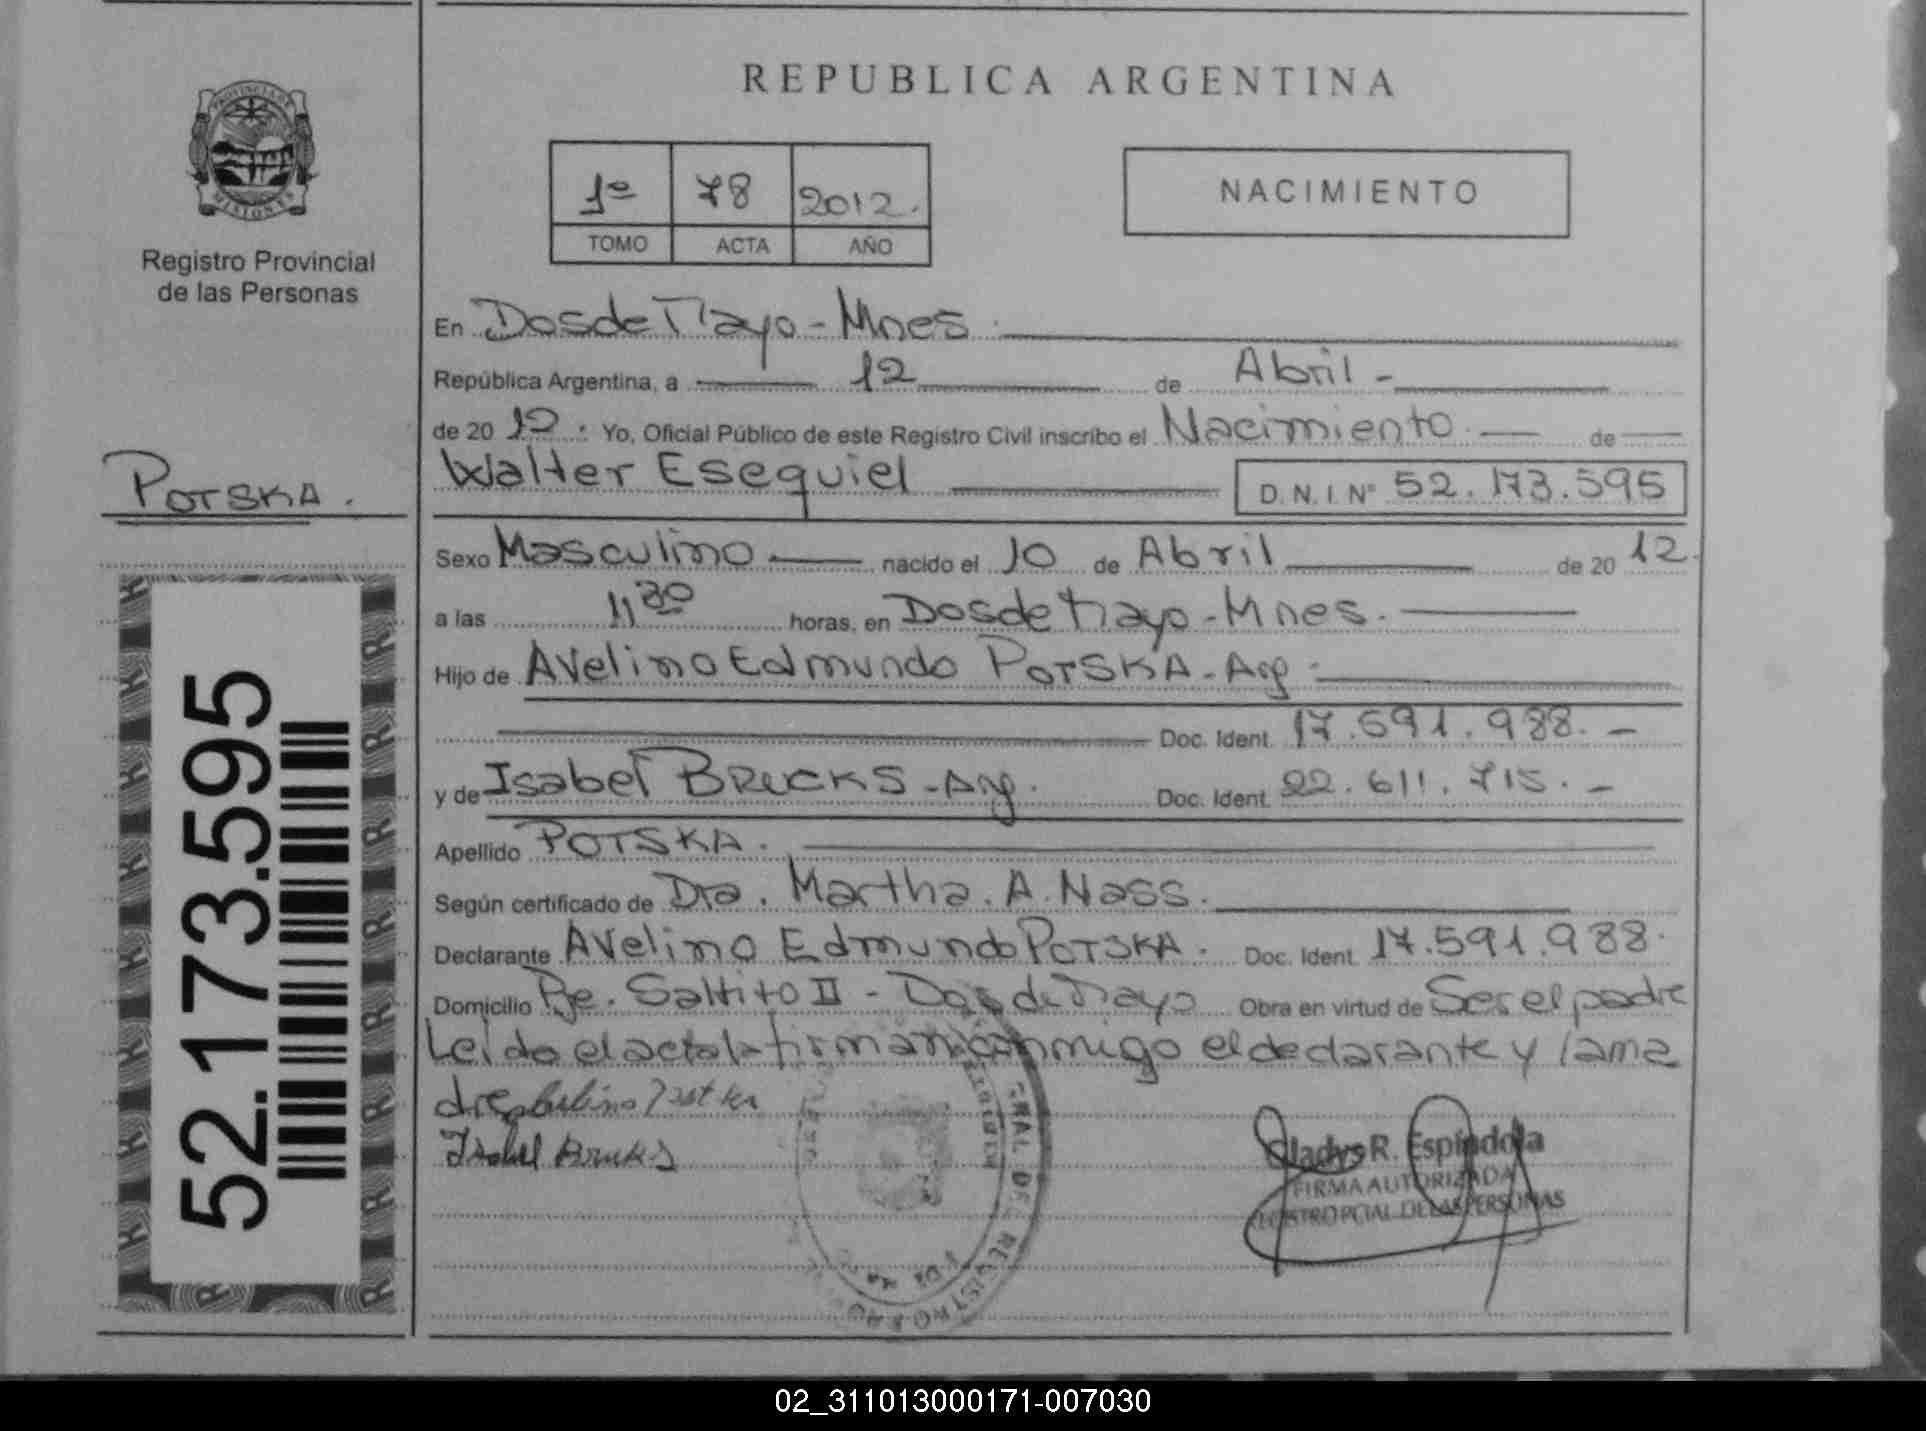 REPUBLICA ARGENTINA
PROVINCIA DE
MISIONES
Registro Provincial
de las Personas
1º 78 2012.
TOMO ACTA AÑO
NACIMIENTO
En Dos de Mayo - Mnes.
República Argentina, a 12 de Abril -
de 20 12. Yo, Oficial Público de este Registro Civil inscribo el Nacimiento. de
POTSKA.
Walter Esequiel D.N.I. Nº 52.173.595
Sexo Masculino nacido el 10 de Abril de 20 12.
a las 11 30 horas, en Dos de Mayo - Mnes.
Hijo de Avelino Edmundo POTSKA - Arg.
Doc. Ident. 17.591.988. -
y de Isabel BRUCKS - Arg. Doc. Ident. 22.611.715. -
Apellido POTSKA.
Según certificado de Dra. Martha. A. Nass.
Declarante Avelino Edmundo POTSKA. Doc. Ident. 17.591.988.
Domicilio Pje. Saltito II - Dos de Mayo Obra en virtud de Ser el padre
Leido el acta la firman conmigo el declarante y la ma
dre Potska
Isabel Bruks
Gladys R. Espindola
FIRMA AUTORIZADA
REGISTRO PCIAL. DE LAS PERSONAS
52.173.595
02_311013000171-007030